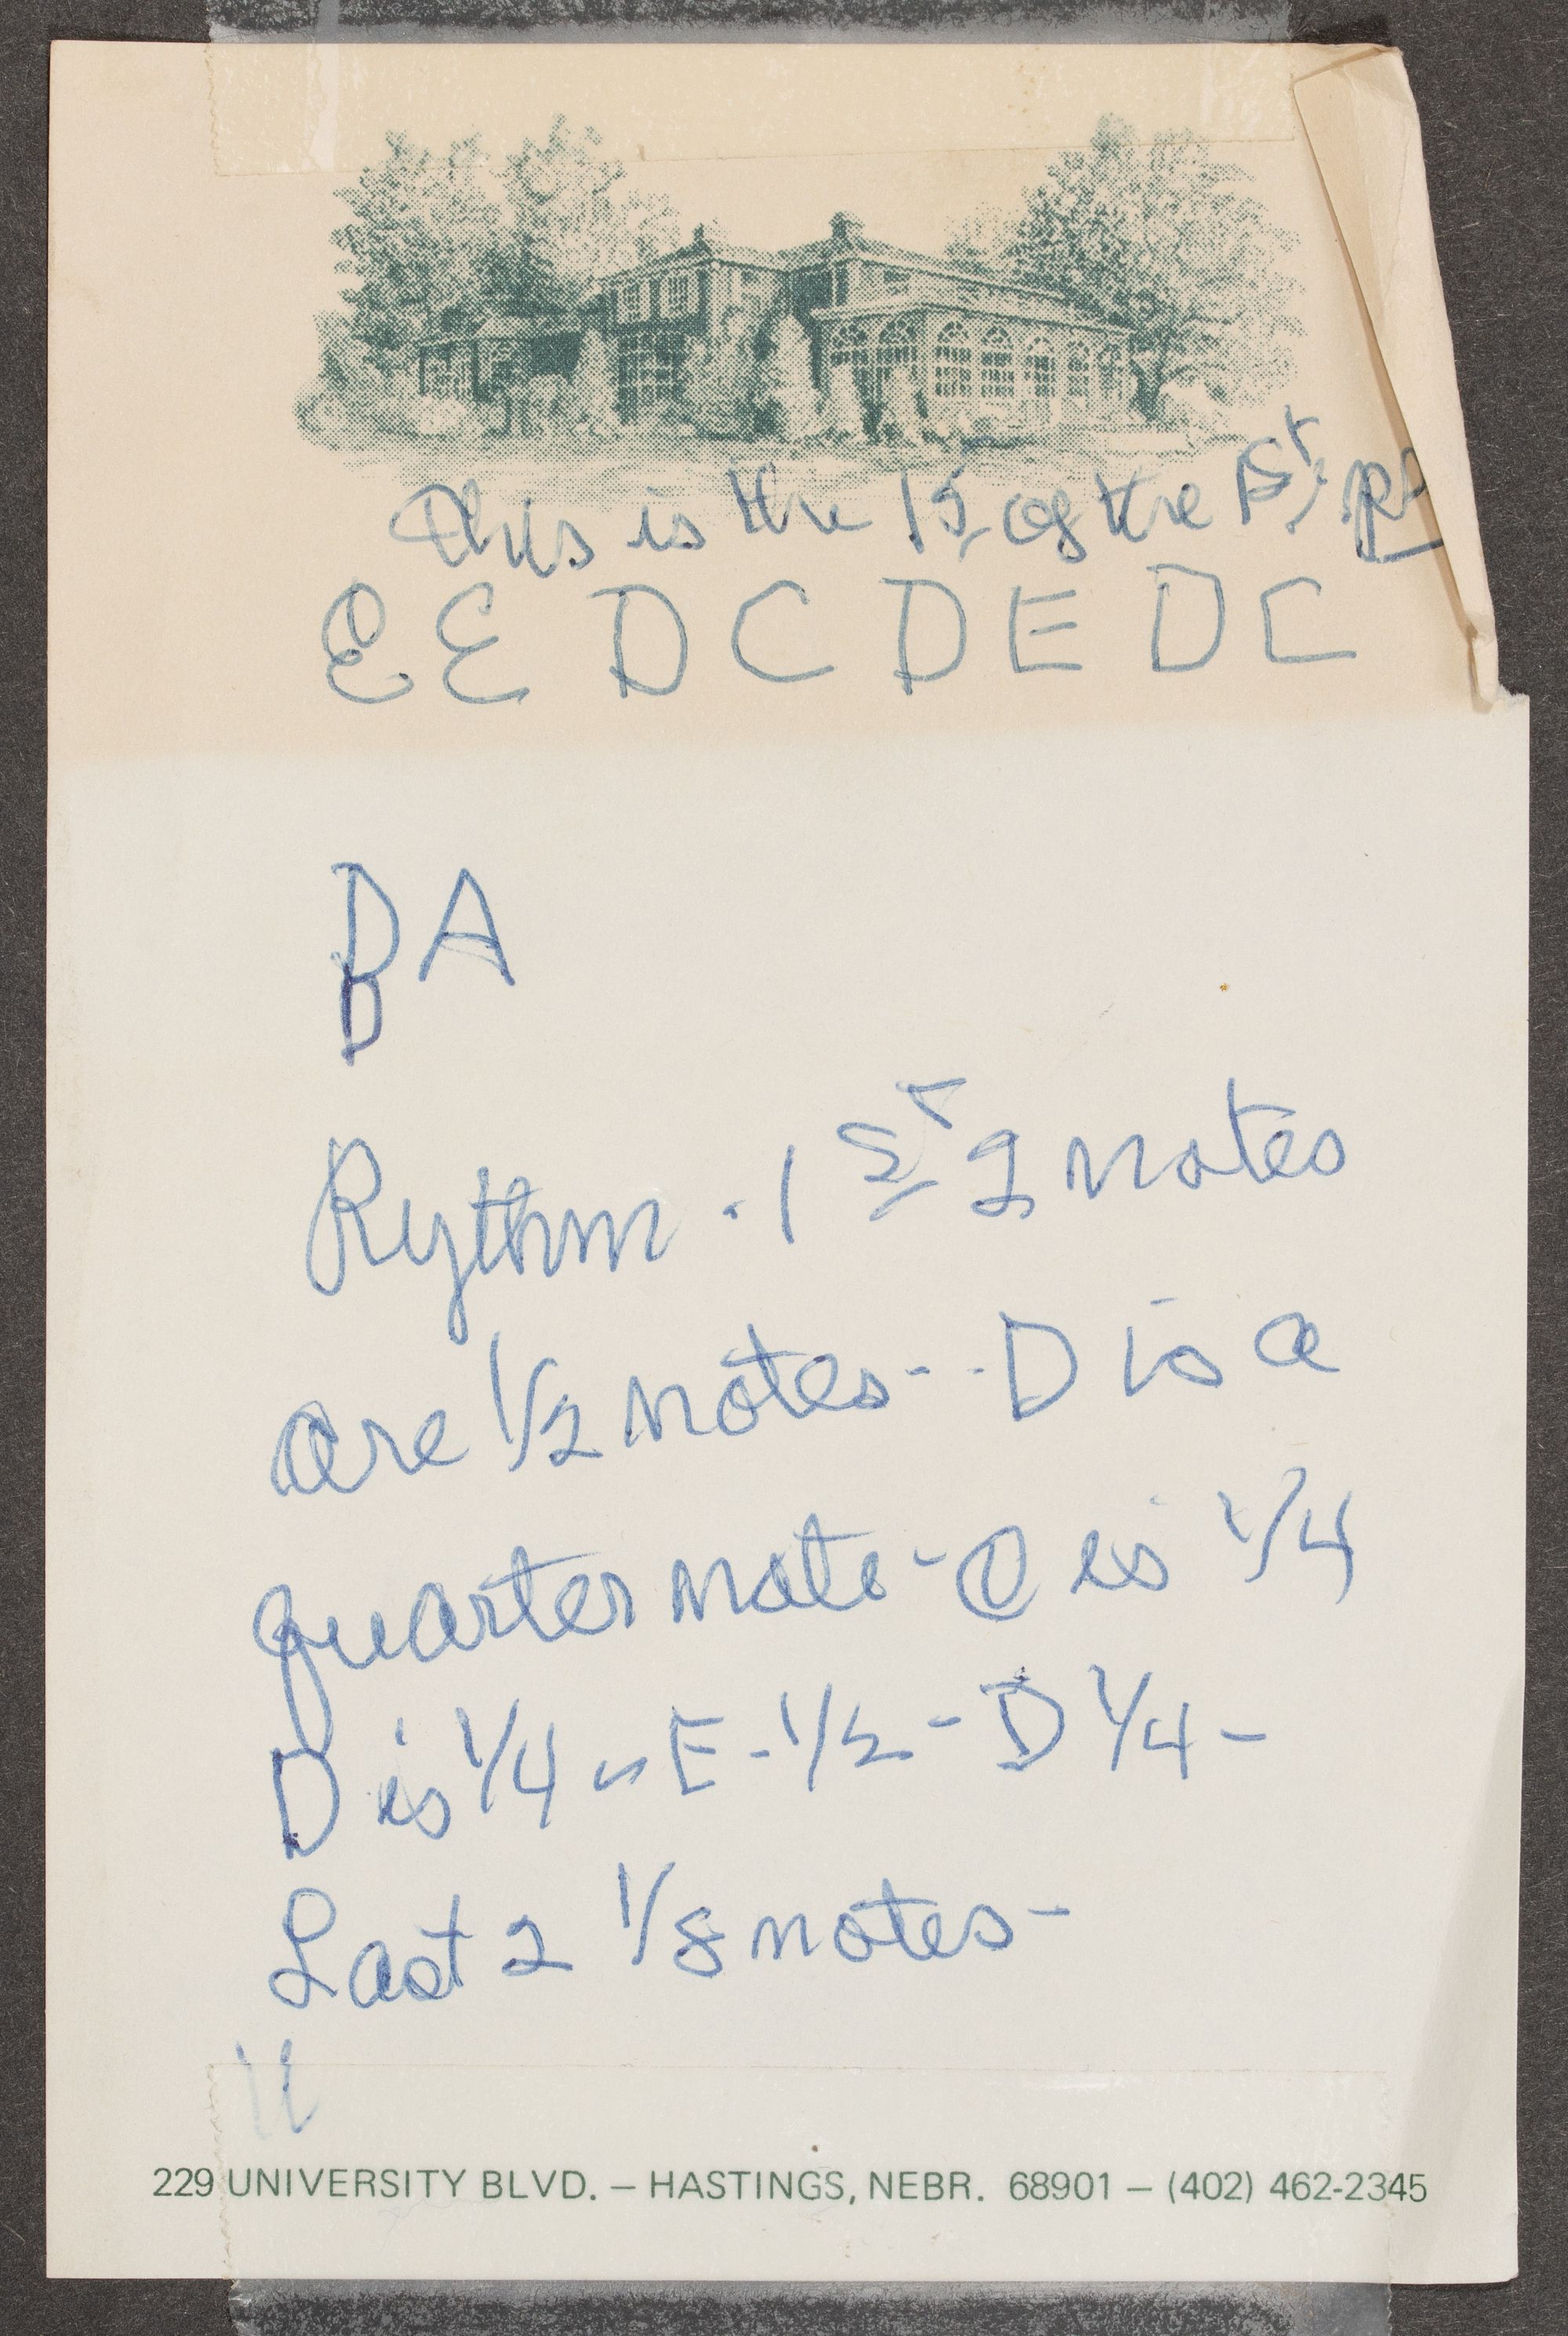 This is the 1st of the 1st.
E E D C D E D C
D A
D
Rythm. 1st 2 notes
are 1/2 notes -- D is a
quarter note - C is 1/4
D is 1/4 - E - 1/2 - D 1/4 -
Last 2 1/8 notes -
229 UNIVERSITY BLVD. — HASTINGS, NEBR. 68901 — (402) 462-2345